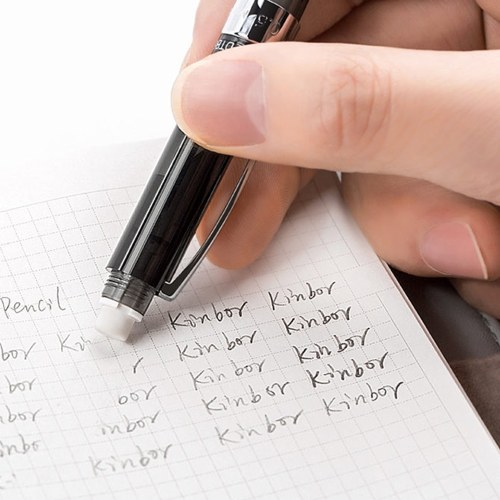 Pencil
bor Kin Kinbor Kinbor
bor r Kinbor Kinbor
bor bor Kinbor Kinbor
inbo inbor Kinbor Kinbor
Kinbor Kinbor Kinbor